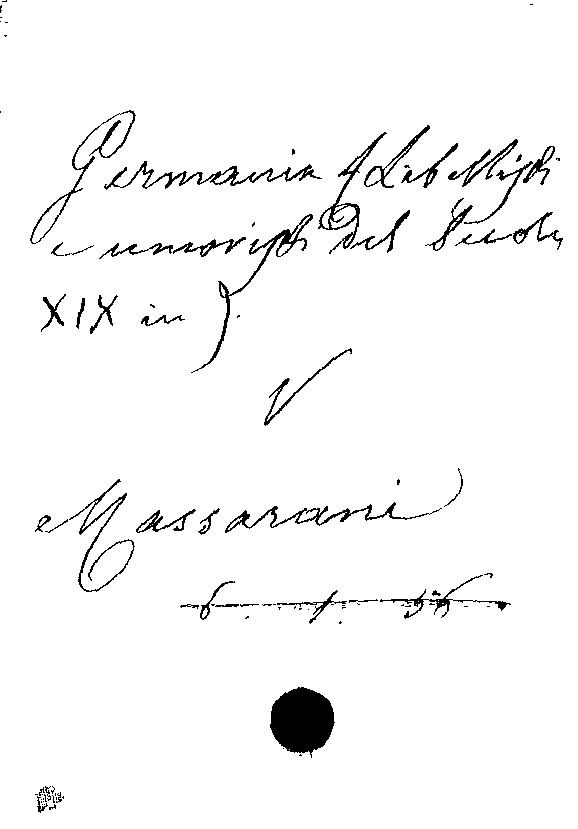 Germania (Libellisti
e umoristi del Secolo
XIX in).
V
Massarani
6. 1. 56